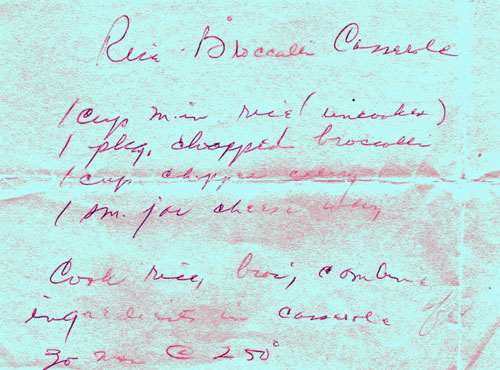 Rice Broccoli Casserole
1 cup min rice (uncooked)
1 pkg. chopped broccolli
1 cup chopped celery
1 sm. jar cheese whiz
Cook rice, broc, combine
ingredients in casserole for
30 min @ 250°